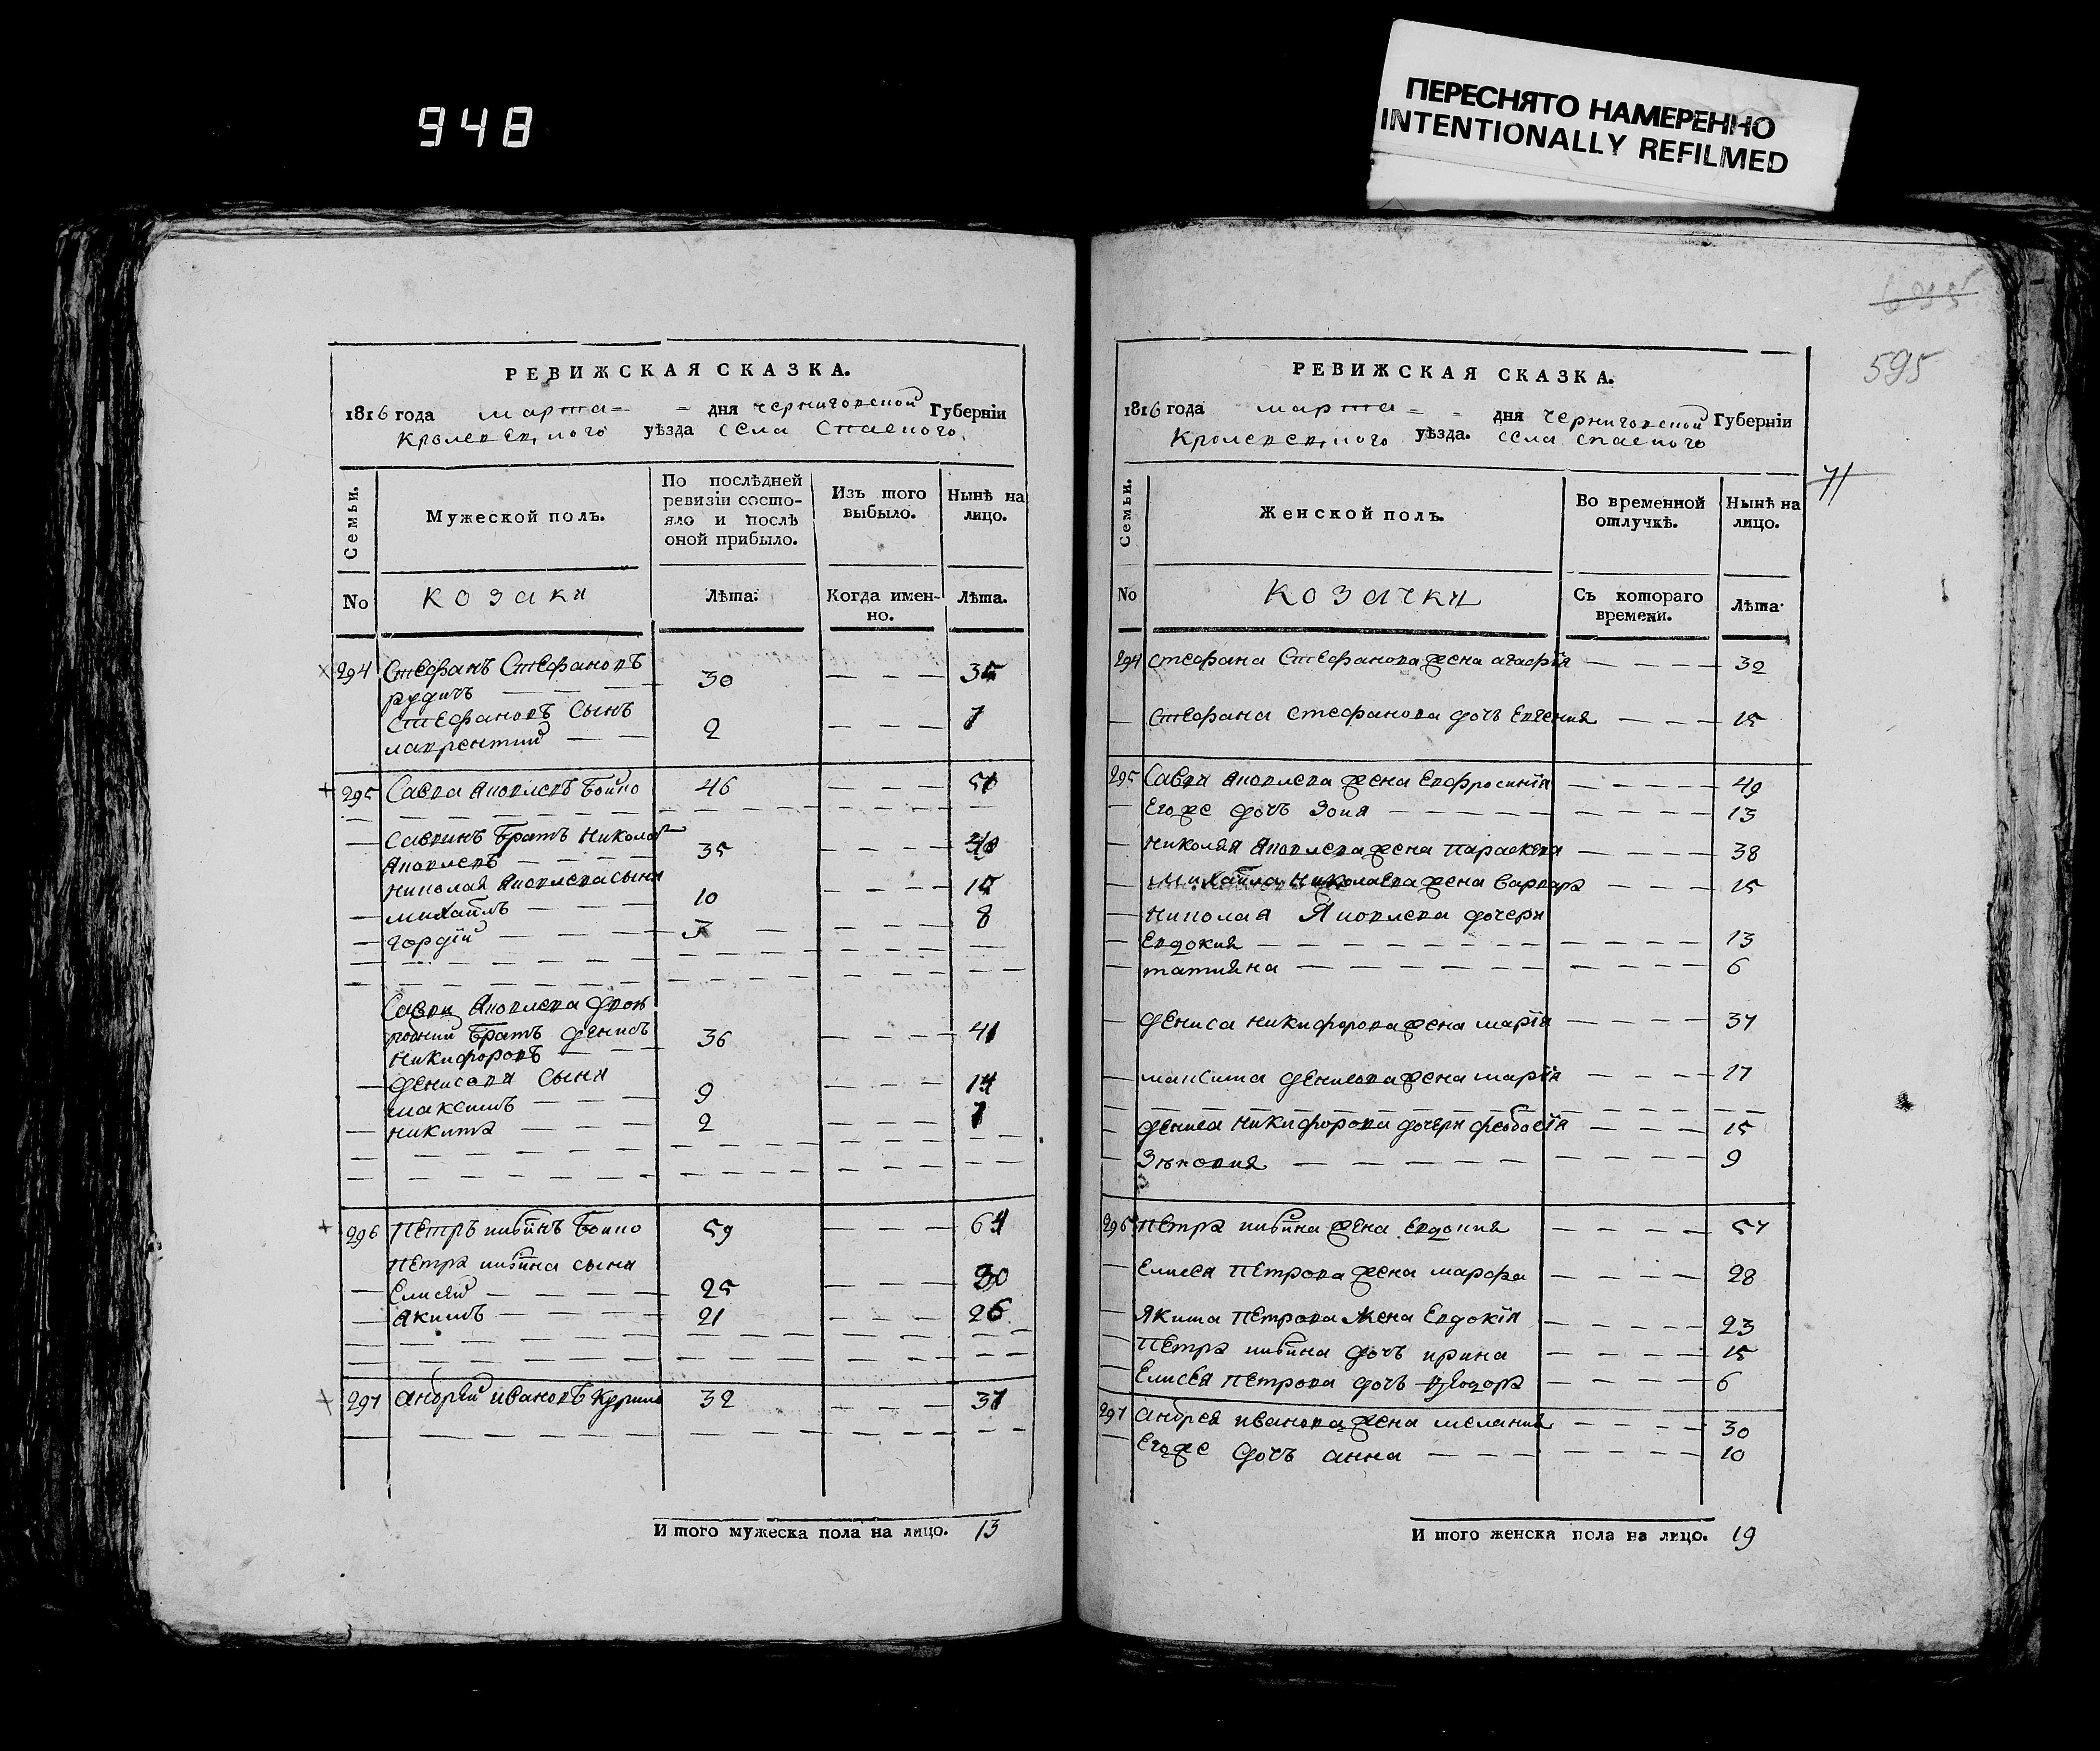 948
ПЕРЕСНЯТО НАМЕРЕННО
INTENTIONALLY REFILMED
595
РЕВИЖСКАЯ СКАЗКА.
1816 года марта дня черниговской Губерніи
Кролевецкого уѣзда села Спаского
Семьи.
Мужеской полъ.
По послѣдней
ревизіи состо-
яло и послѣ
оной прибыло.
Изъ того
выбыло.
Нынѣ на
лицо.
No
козаки
Лѣта:
Когда имен-
но.
Лѣта.
294 Стефанъ Стефановъ
рудичъ 30 35
Стефановъ Сынъ
лаврентий 2 7
295 Савва Яковлевъ Бойко 46 51
Саввинъ Братъ Николай
Яковлевъ 35 40
Николая Яковлева сыны
михаилъ 10 15
гордій 3 8
Саввы Яковлева двою
родный Братъ денисъ
Никифоровъ 36 41
денисовы сыны
максимъ 9 14
никита 2 7
296 Петръ Бойко 59 64
Петра сыны
Елисей 25 30
Яким 21 26
297 андрей ивановъ 32 37
И того мужеска пола на лицо. 13
РЕВИЖСКАЯ СКАЗКА.
1816 года марта дня черниговской Губерніи
Кролевецкого уѣзда. села спаского
71
Семьи.
Женской полъ.
Во временной
отлучкѣ.
Нынѣ на
лицо.
No
козачки
Съ котораго
времени.
Лѣта
294 стефана Стефанова жена агафія 32
Стефана стефанова дочь Евгения 15
295 Саввы Яковлева жена Евфросинія 49
Егоже дочь Зоия 13
николая Яковлева жена параскева 38
Михайла Николаева жена варвара 15
николая Яковлева дочери
Евдокия 13
татияна 6
дениса никифорова жена марія 37
максима денисова жена марія 17
дениса никифорова дочери феодосія 15
Зѣновия 9
296 петра жена Евдокия 57
Елисея петрова жена марфа 28
Якима петрова жена Евдокія 23
Петра дочь ирина 15
Елисея петрова дочь 6
297 андрея иванова жена мелания 30
Егоже дочь анна 10
И того женска пола на лицо. 19